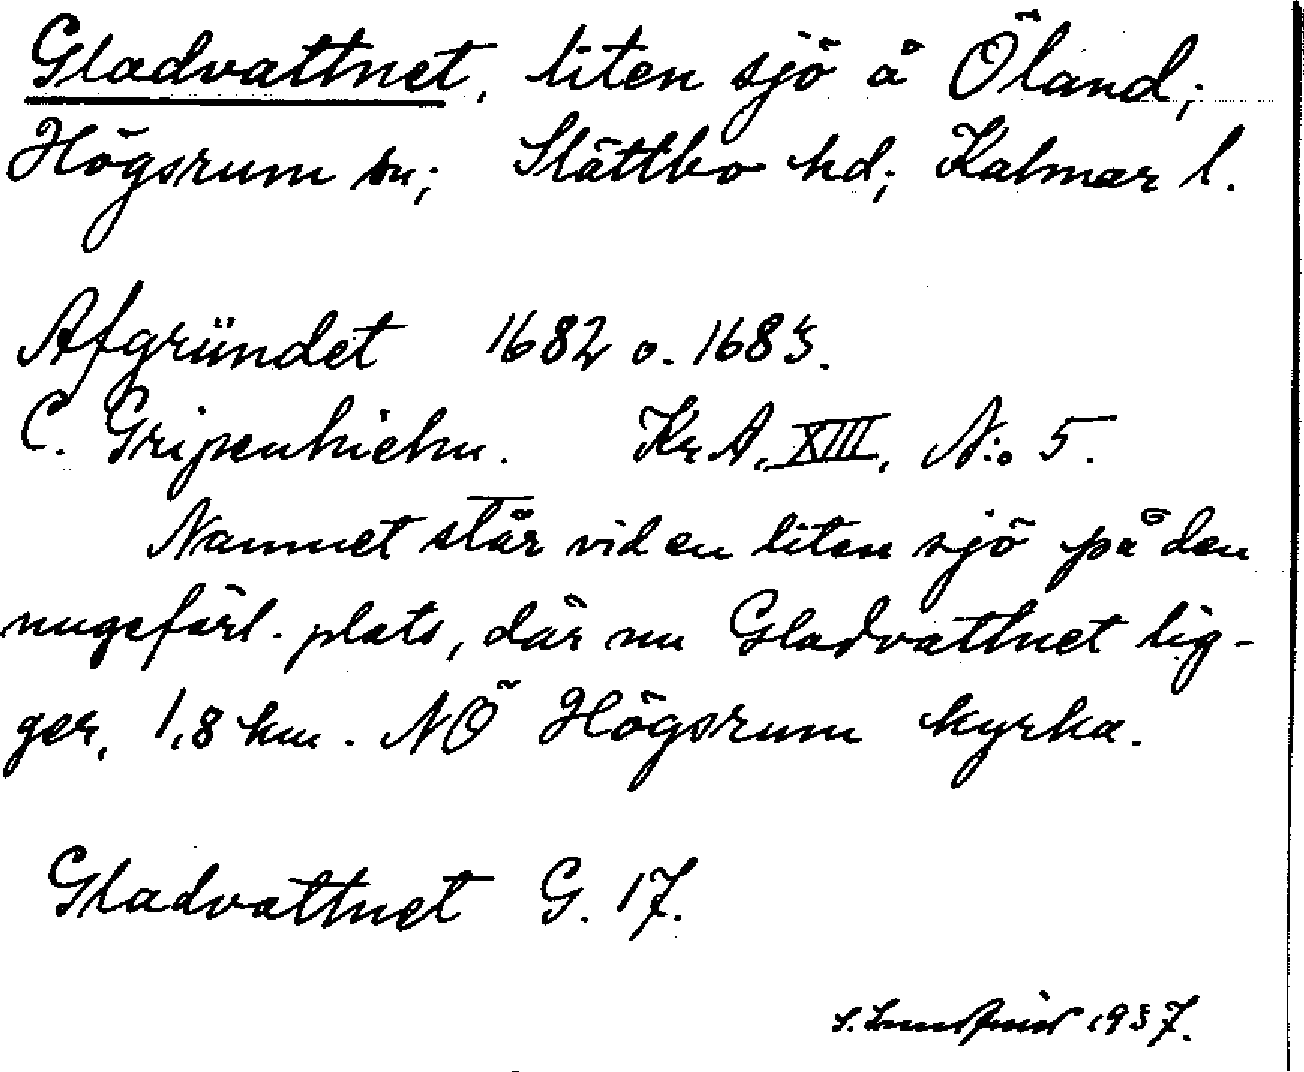 Gladvattnet, liten sjö å Öland;
Högsrum sn; Slättbo hd; Kalmar l.
Afgründet 1682 o. 1683.
C. Gripenhielm. Kr A, XIII, N:o 5.
Namnet står vid en liten sjö på den
nugefärl. plats, där nu Gladvattnet lig-
ger, 1,8 km. NÖ Högsrum kyrka.
Gladvattnet G. 17.
1937.